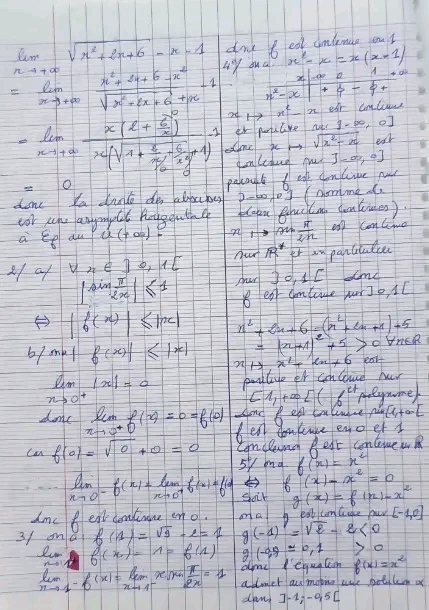 lim √(x²+2x+6) - x - 1
x→+∞
= lim (x²+2x+6-x²)/(√(x²+2x+6)+x) - 1
x→+∞
= lim x(2+6/x)/(x(√(1+2/x+6/x²)+1)) - 1
x→+∞
= 0
donc la droite des abscisses
est une asymptote horizontale
à ξf au V(+∞).
2/ a/ ∀ x ∈ ]0,1[
|sin π/2x| ≤ 1
⇔ |f(x)| ≤ |x|
b/ on a |f(x)| ≤ |x|
lim |x| = 0
x→0⁺
donc lim f(x) = 0 = f(0)
x→0⁺
car f(0) = √0 + 0 = 0
lim f(x) = lim f(x) = f(0)
x→0⁻ x→0⁺
donc f est continue en 0.
3/ on a f(1) = √9 - 2 = 1
lim f(x) = 1 = f(1)
x→1⁺
lim f(x) = lim x sin π/2x = 1
x→1⁻ x→1⁻
donc f est continue en 1
4°/ on a x² - x = x(x-1)
x -∞ 0 1 +∞
x²-x + 0 - 0 +
x ↦ x² - x est continue
et positive sur ]-∞, 0]
donc x ↦ √(x²-x) est
continue sur ]-∞, 0]
f est continue sur
]-∞, 0] (somme de
deux fonctions continues).
x ↦ sin π/2x est continue
sur ℝ* et en particulier
sur ]0,1[ donc
f est continue sur ]0,1[
x²+2x+6 = (x²+2x+1)+5
= |x+1|²+5 > 0 ∀x∈ℝ
x ↦ x²+2x+6 est
positive et continue sur
[1,+∞[ (f^ct polynome)
donc f est continue sur [1,+∞[
f est continue en 0 et 1
Conclusion f est continue sur ℝ
5°/ on a f(x) = x²
⇔ f(x) - x² = 0
Soit g(x) = f(x) - x²
on a g est continue sur [-1,0]
g(-1) = √2 - 2 < 0
g(-0,5) = 0,1 > 0
donc l'équation f(x)=x²
admet au moins une solution α
dans ]-1,-0,5[